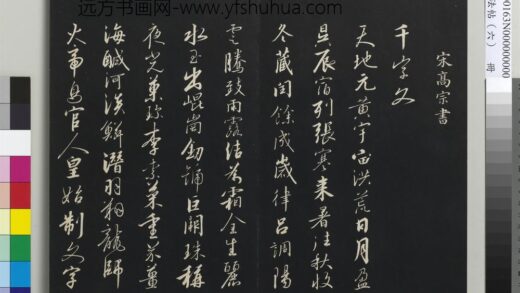 远方书画网-www.yfshuhua.com
宋高宗書
千字文
天地元黃宇宙洪荒日月盈
昃辰宿列張寒来暑往秋收
冬藏閏餘成歲律吕調陽
雲騰致雨露結為霜金生麗
水玉出崐崗劒號巨闕珠稱
夜光菓珍李柰菜重芥薑
海鹹河淡鱗潛羽翔龍師
火帝鳥官人皇始制文字
法帖（六） 册